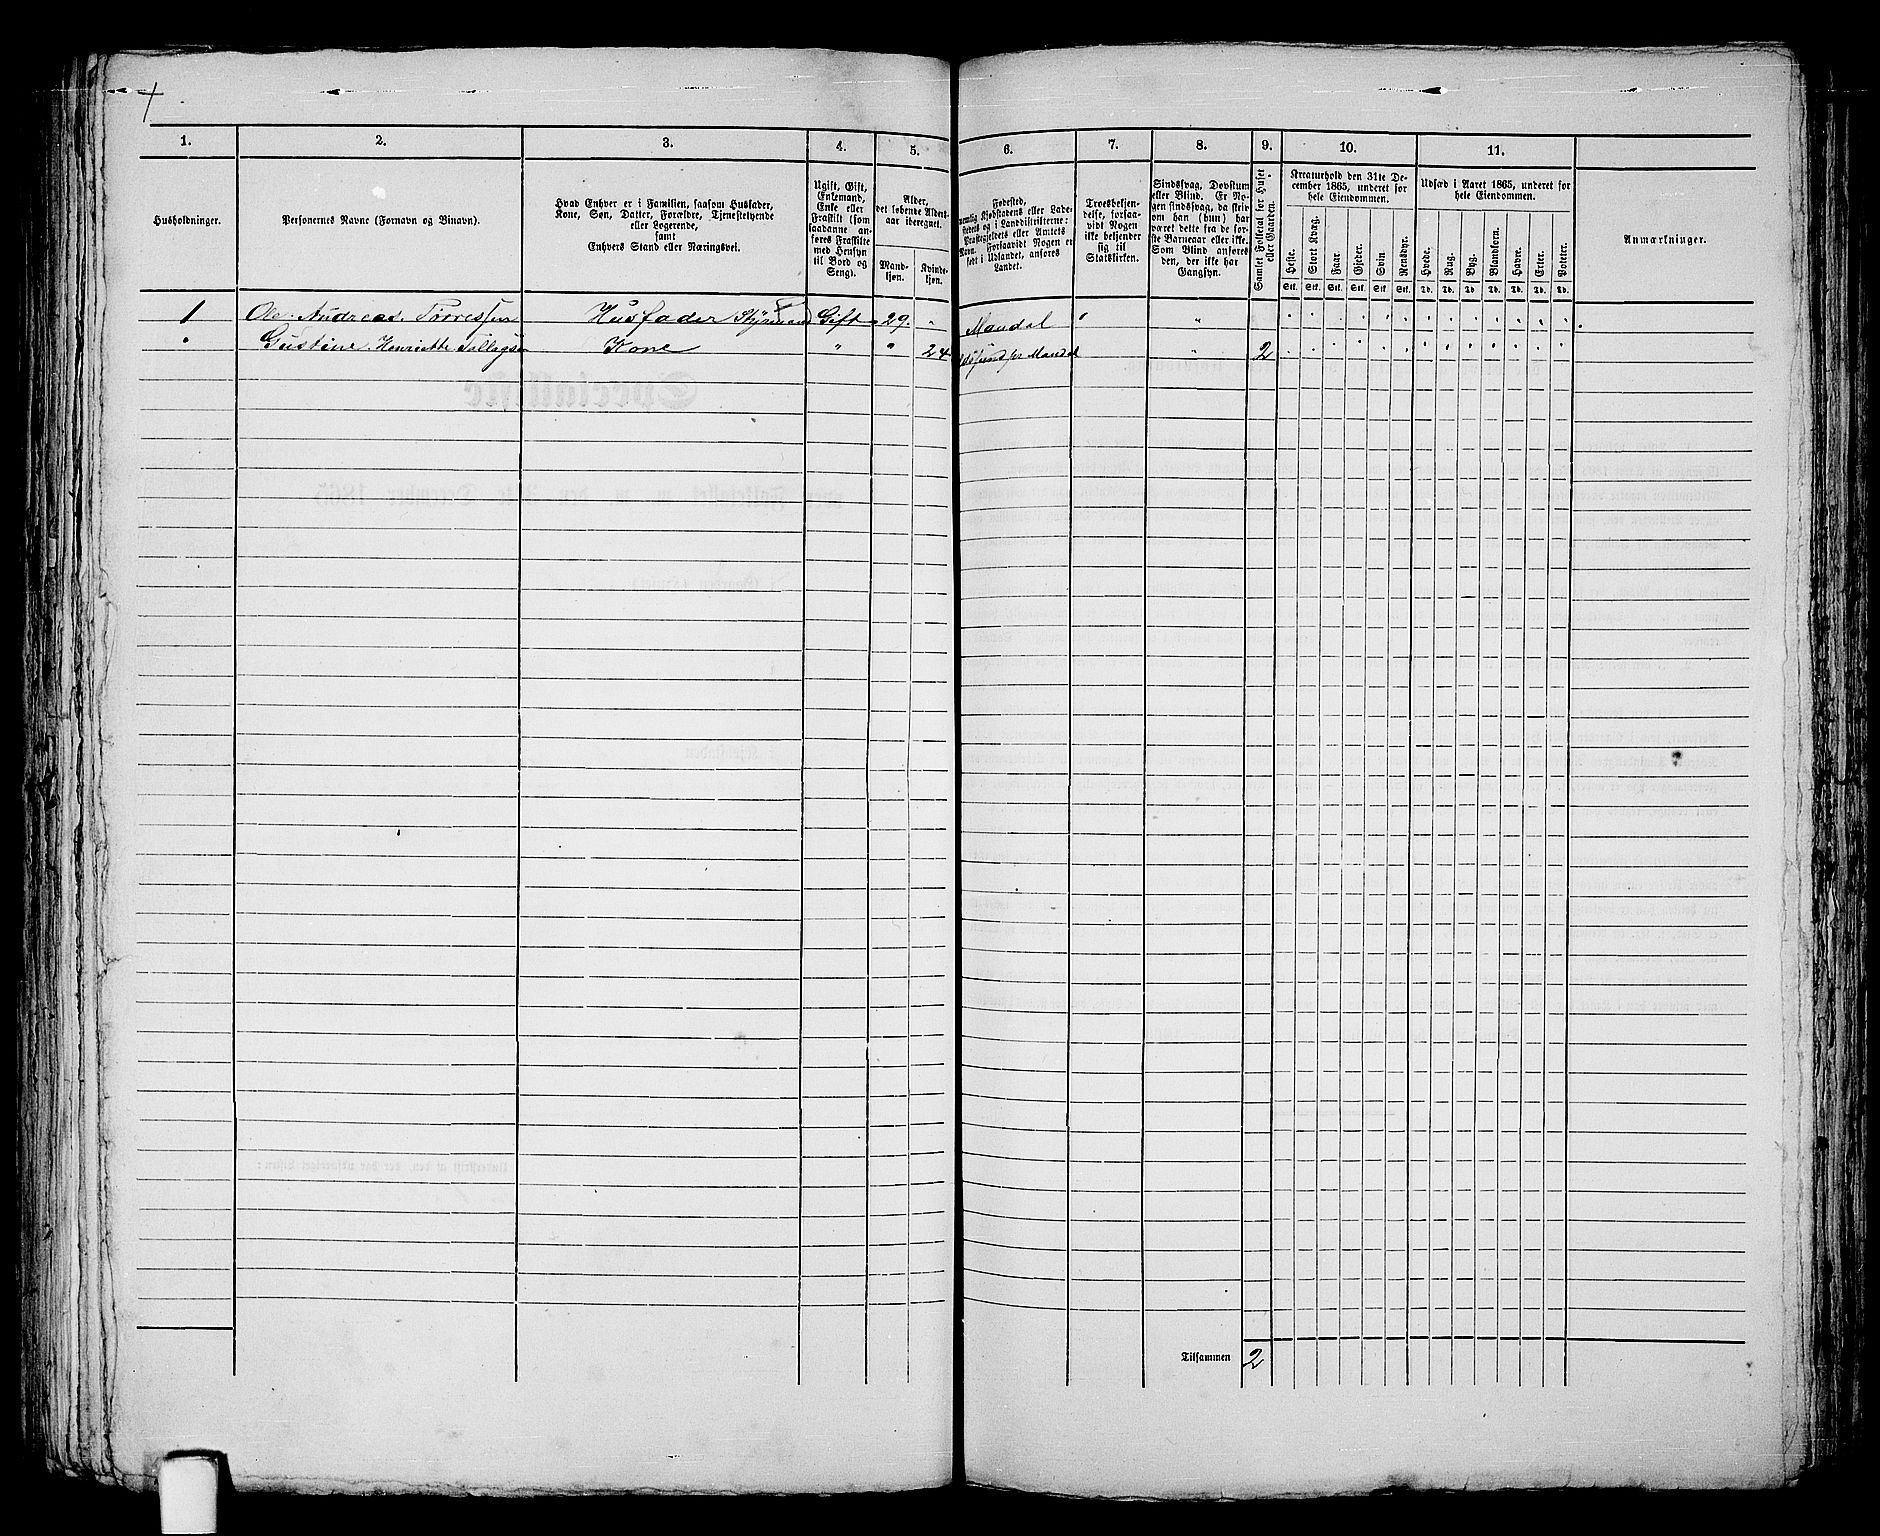 1. 2. 3. 4. 5. 6. 7. 8. 9. 10. 11.
Husholdninger.
Personernes Navne (Fornavn og Binavn).
Hvad Enhver er i Familien, saasom Husfader,
Kone, Søn, Datter, Forældre, Tjenestetyende
eller Logerende,
samt
Enhvers Stand eller Næringsvei.
Ugift, Gift,
Enkemand,
Enke eller
Fraskilt (som
saadanne an-
føres Fraskilte
med Hensyn
til Bord og
Seng).
Alder,
det løbende Alders-
aar iberegnet.
Mand-
kjøn.
Kvinde-
kjøn.
Fødested,
nemlig Kjøbstadens eller Lade-
stedets og i Landdistrikterne:
Præstegjeldets eller Amtets
Navn. Forsaavidt Nogen er
født i Udlandet, anføres
Landet.
Troesbekjen-
delse, forsaa-
vidt Nogen
ikke bekjender
sig til
Statskirken.
Sindssvag, Døvstum
eller Blind. Er No-
gen sindssvag, da skriv
om han (hun) har
været dette fra de før-
ste Barneaar eller ikke.
Som Blind anføres
den, der ikke har
Gangsyn.
Samlet Folketal for Huset
eller Gaarden.
Kreaturhold den 31te De-
cember 1865, underet for
hele Eiendommen.
Heste. Stort Kvæg. Faar. Gjeder. Svin. Rensdyr.
Stk. Stk. Stk. Stk. Stk. Stk.
Udsæd i Aaret 1865, underet for
hele Eiendommen.
Hvede. Rug. Byg. Blandkorn. Havre. Erter. Poteter.
Td. Td. Td. Td. Td. Td. Td.
Anmærkninger.
1 Ole Andreas Tørressen Husfader Styrmand Gift " 29. " Mandal "
" Gustine Henriette Kone " " 24 Mandal " 2
Tilsammen 2